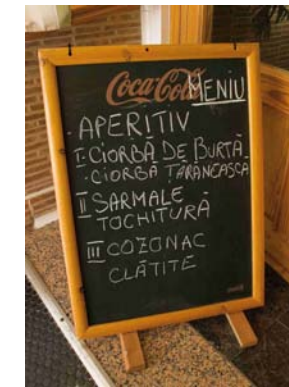 Coca-Cola
MENIU
· APERITIV
I· CIORBĂ DE BURTĂ
· CIORBĂ ŢĂRĂNEASCĂ
II SARMALE
TOCHITURĂ
III COZONAC
CLĂTITE